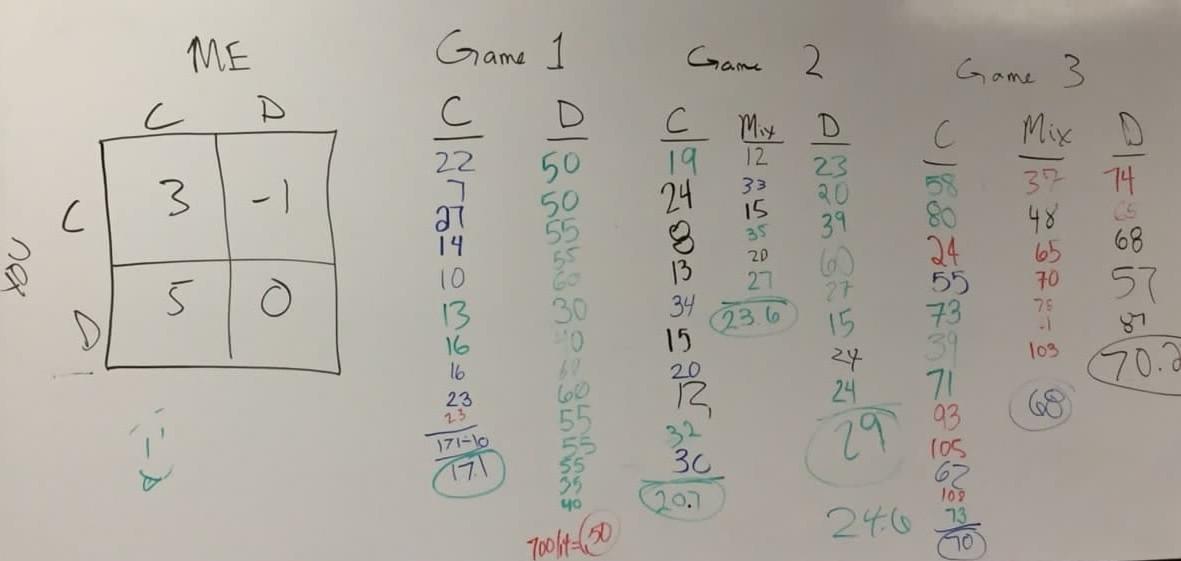 ME
C D
C 3 -1
YOU
D 5 0
Game 1
C D
22 50
7 50
27 55
14 55
10 60
13 30
16
16
23 60
23 55
171÷10 55
17.1 55
35
40
700/14=50
Game 2
C Mix D
19 12 23
24 33 20
8 15 39
13 35 60
34 20 27
15 27 15
20 23.6 24
12 24
32 29
30
20.7
24.6
Game 3
C Mix D
58 37 74
80 48 65
24 65 68
55 70 57
73 75 87
39 -1 70.2
71 103
93 68
105
62
108
73
70